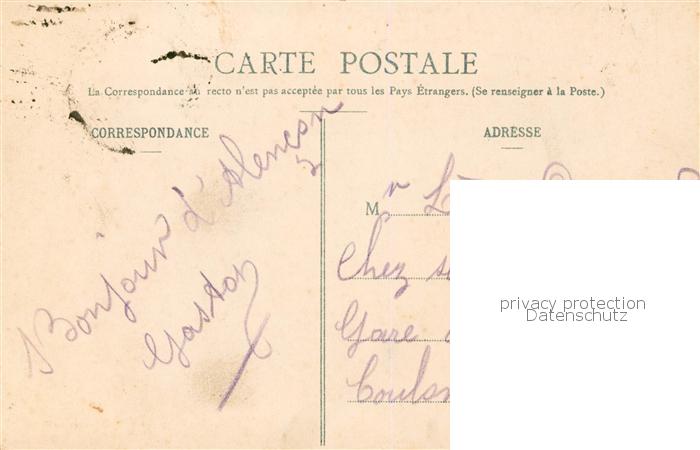 CARTE POSTALE
La Correspondance au recto n'est pas acceptée par tous les Pays Étrangers. (Se renseigner à la Poste.)
CORRESPONDANCE
Bonjour d'Alençon
Gaston
ADRESSE
Mr
Chez
Gare
privacy protection
Datenschutz